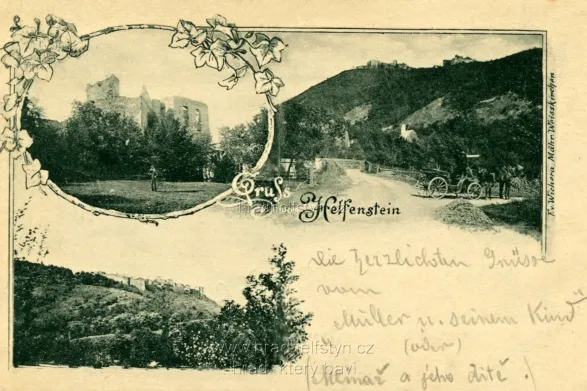 Gruß
Helfenstein
Fr. Wichera, Mähr. Weisskirchen
die herzlichsten Grüsse
vom
Müller u. seinem Kind
(oder)
a jeho dítě!
www.hradhelfstyn.cz
hrad, který baví